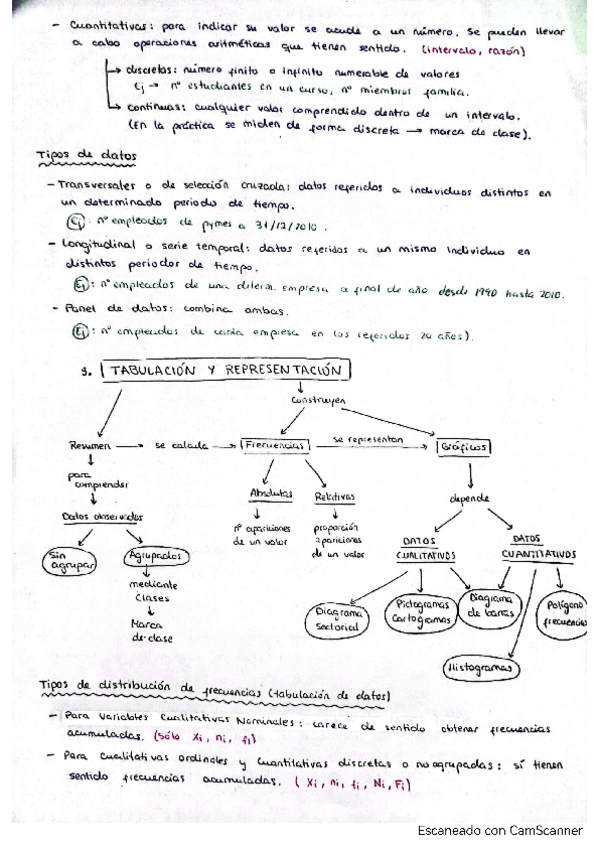 - Cuantitativas: para indicar su valor se acude a un número. Se pueden llevar
a cabo operaciones aritméticas que tienen sentido. (intervalo, razón)
→ discretas: número finito o infinito numerable de valores
Ej → nº estudiantes en un curso, nº miembros familia.
→ continuas: cualquier valor comprendido dentro de un intervalo.
(En la práctica se miden de forma discreta → marca de clase).
Tipos de datos
- Transversales o de selección cruzada: datos referidos a individuos distintos en
un determinado periodo de tiempo.
Ej: nº empleados de pymes a 31/12/2010.
- Longitudinal o serie temporal: datos referidos a un mismo individuo en
distintos periodos de tiempo.
Ej: nº empleados de una determ. empresa a final de año desde 1990 hasta 2010.
- Panel de datos: combina ambas.
Ej: nº empleados de cada empresa en los referidos 20 años).
3. TABULACIÓN Y REPRESENTACIÓN
Construyen
Resumen → se calcula → Frecuencias se representan → Gráficos
para
comprender
Datos observados
Sin
agrupar
Agrupados
mediante
clases
Marca
de clase
Absolutas
nº apariciones
de un valor
Relativas
proporción
apariciones
de un valor
depende
DATOS
CUALITATIVOS
DATOS
CUANTITATIVOS
Diagrama
Sectorial
Pictogramas
Cartogramas
Diagrama
de barras
Polígono
frecuencias
Histogramas
Tipos de distribución de frecuencias (tabulación de datos)
- Para Variables Cualitativas Nominales: carece de sentido obtener frecuencias
acumuladas. (sólo xi, ni, fi)
- Para cualitativas ordinales y cuantitativas discretas o no agrupadas: sí tienen
sentido frecuencias acumuladas. (xi, ni, fi, Ni, Fi)
Escaneado con CamScanner